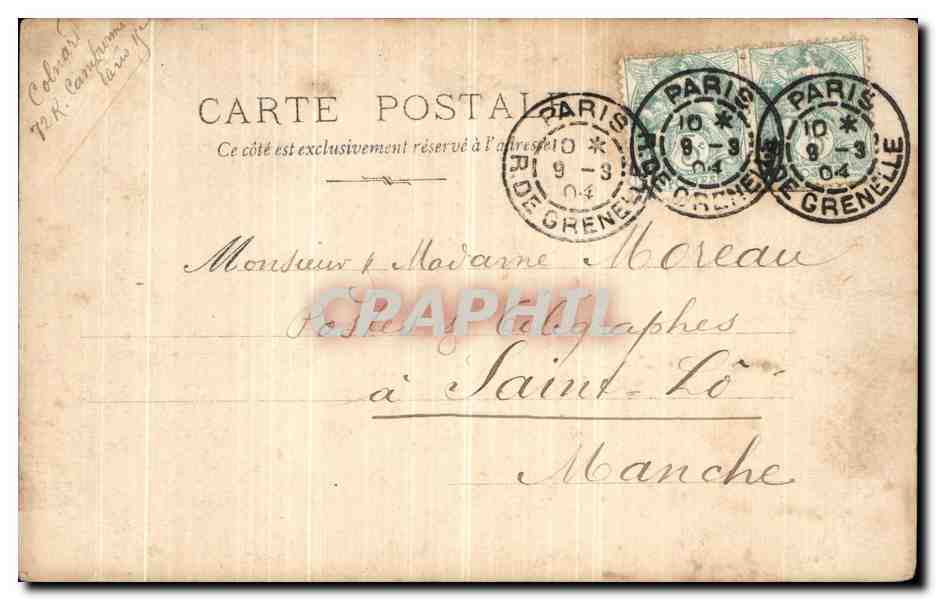 Colnard
72 R. Cambronne
Paris 15e
CARTE POSTALE
Ce côté est exclusivement réservé à l'adresse
PARIS
10 *
9 - 3
04
R. DE GRENELLE
PARIS
10 *
9 - 3
04
R. DE GRENELLE
PARIS
10 *
9 - 3
04
R. DE GRENELLE
Monsieur & Madame Moreau
CPAPHIL
Postes & Télégraphes
à Saint-Lô
Manche